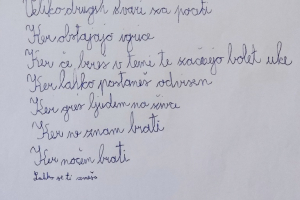 Veliko drugih stvari za početi
Ker obstajajo igrice
Ker če bereš v temi te začnejo bolet uke
Ker lahko postaneš odvisen
Ker greš ljudem na živce
Ker ne znam brati
Ker nočem brati
Lahko se ti